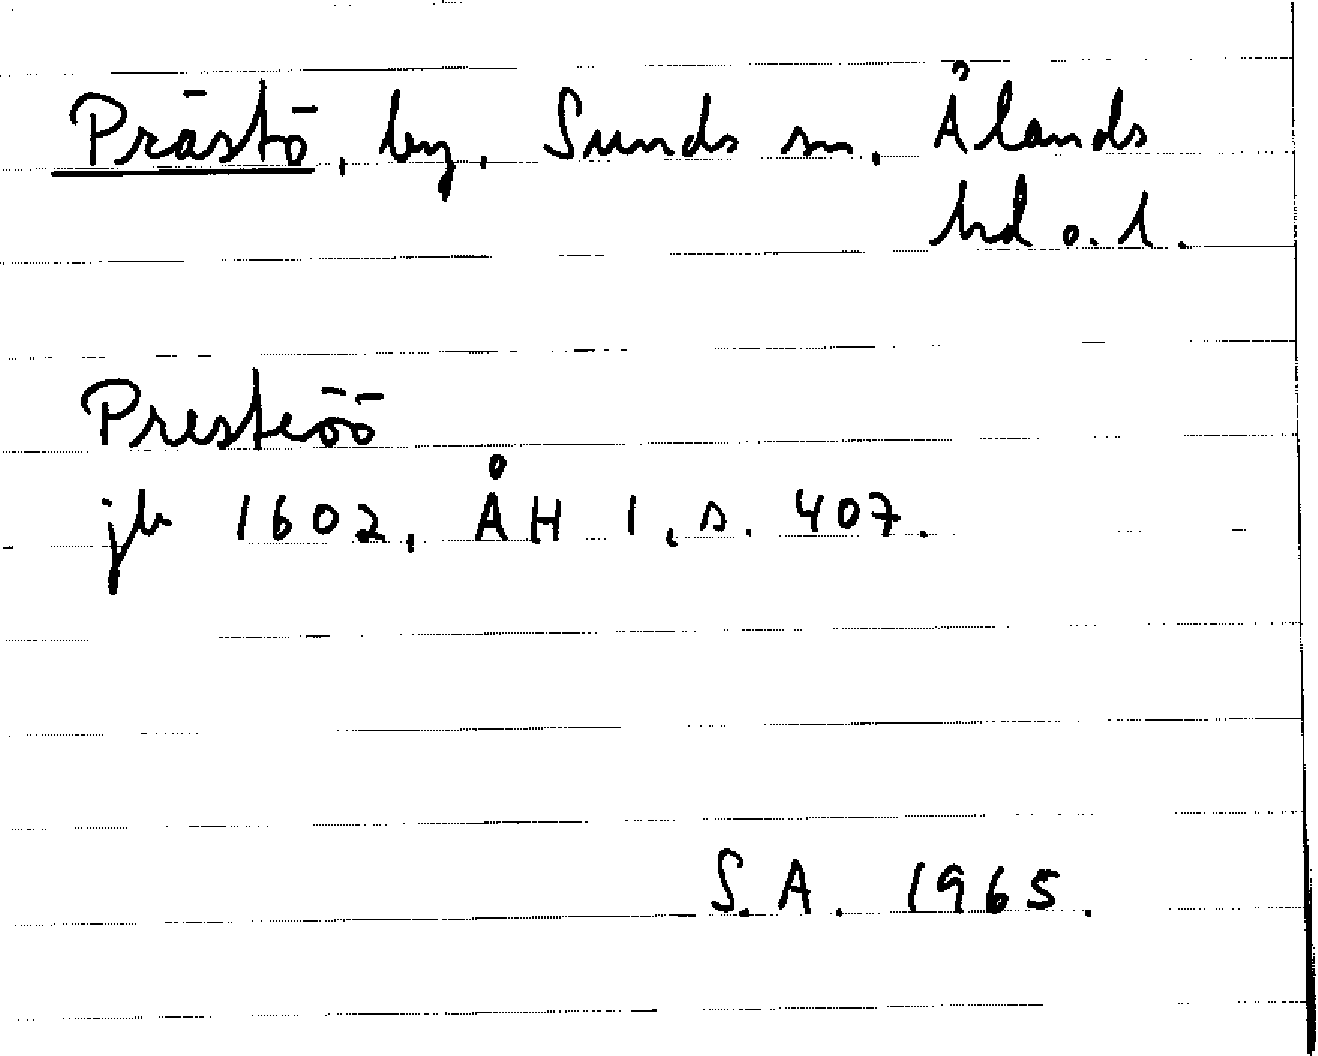 Prästö, by, Sunds sn, Ålands
hd o. l.
Presteöö
jb 1602, ÅH 1, s. 407.
S.A. 1965.